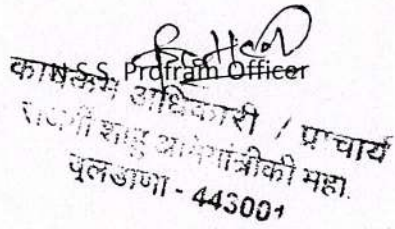 N.S.S. Profram Officer
कार्यक्रम अधिकारी / प्राचार्य
राजर्षी शाहु अभियांत्रीकी महा.
बुलडाणा - 443001